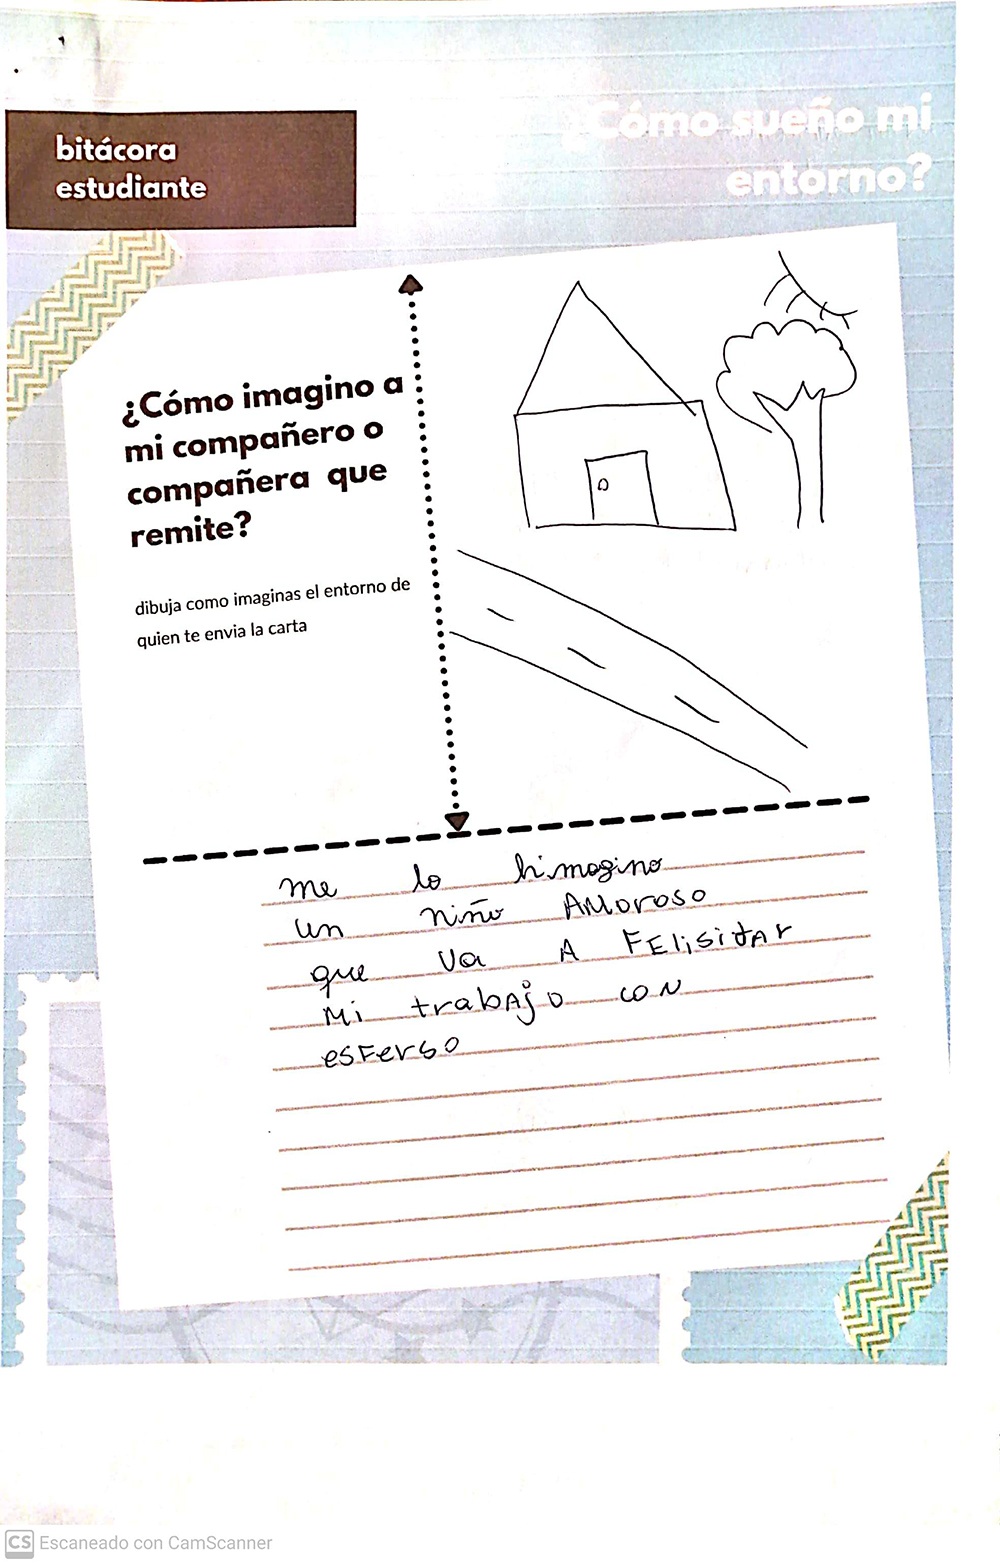 bitácora
estudiante
¿Cómo sueño mi
entorno?
¿Cómo imagino a
mi compañero o
compañera que
remite?
dibuja como imaginas el entorno de
quien te envia la carta
me lo himagino
un niño AMoroso
que va A FElisitAr
Mi trabAjo coN
esFerso
CS Escaneado con CamScanner